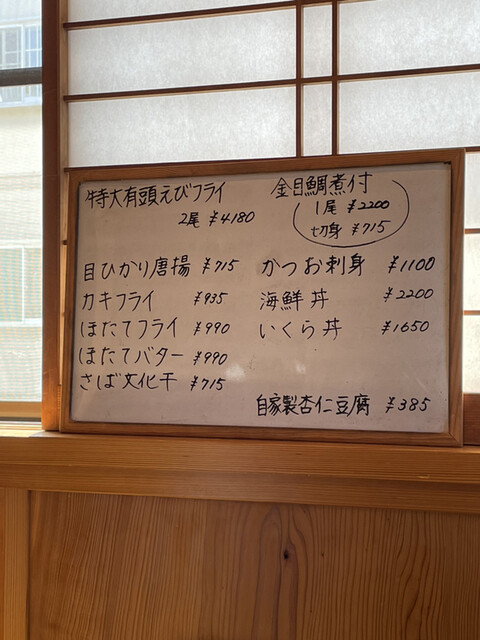 特大有頭えびフライ
2尾 ¥4180
目ひかり唐揚 ¥715
カキフライ ¥935
ほたてフライ ¥990
ほたてバター ¥990
さば文化干 ¥715
金目鯛煮付
1尾 ¥2200
切身 ¥715
かつお刺身 ¥1100
海鮮丼 ¥2200
いくら丼 ¥1650
自家製杏仁豆腐 ¥385